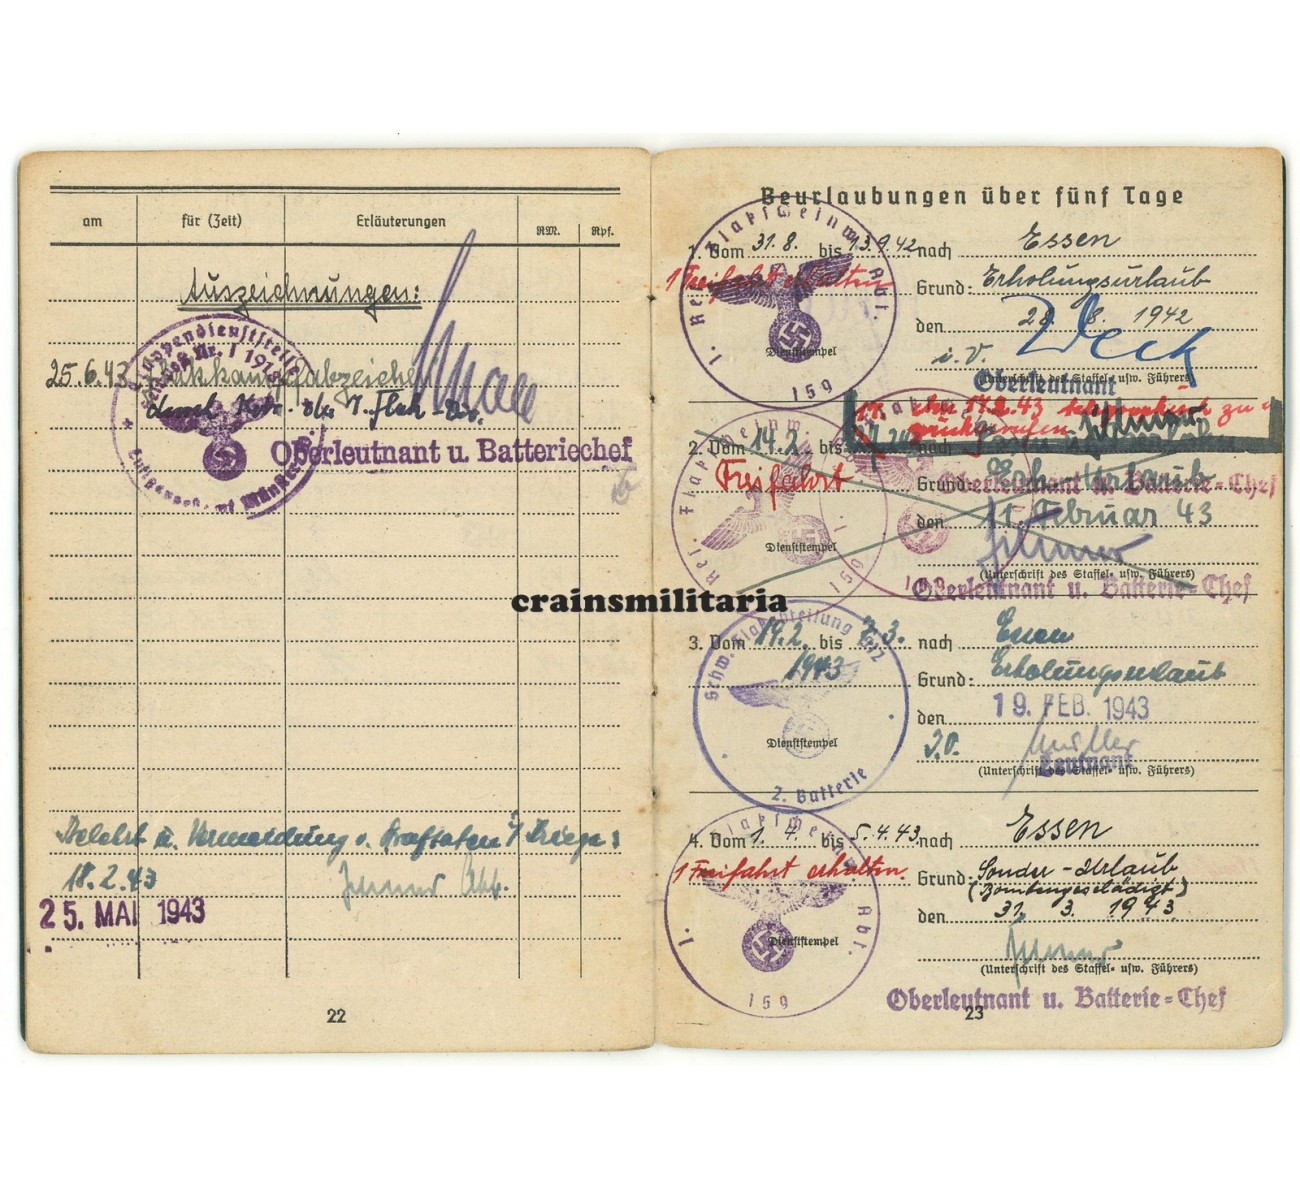 am für (Zeit) Erläuterungen RM. Rpf.
Auszeichnungen:
25.6.43 Flakkampfabzeichen
durch Kdr. der 7. Flak-Div.
Oberleutnant u. Batteriechef
Belehrt u. Vermeidung v. Straftaten
18.2.43
25. MAI 1943
22
Beurlaubungen über fünf Tage
1. Vom 31.8. bis 13.9.42 nach Essen
1 Freifahrt erhalten
Grund: Erholungsurlaub
den 28. 8. 1942
i.V. Deck
Oberleutnant
(Unterschrift des Staffel- usw. Führers)
Dienststempel
1. Res. Flakscheinw. Abt. 159
17.2.43 telegraphisch zu
zurückgerufen
2. Vom 14.2. bis nach
Freifahrt
Grund: Urlaub
Oberleutnant u. Batterie-Chef
den 11. Februar 43
Dienststempel
(Unterschrift des Staffel- usw. Führers)
Oberleutnant u. Batterie-Chef
crainsmilitaria
3. Vom 19.2. bis 7.3. nach Essen
1943
Grund: Erholungsurlaub
den 19. FEB. 1943
Leutnant
Dienststempel
(Unterschrift des Staffel- usw. Führers)
Schw. Flakabteilung
2. Batterie
4. Vom 1. 4. bis 5.4.43. nach Essen
1 Freifahrt erhalten.
Grund: Sonder-Urlaub
(Bombengeschädigt)
den 31. 3. 1943
Dienststempel
(Unterschrift des Staffel- usw. Führers)
Abt. 159
Oberleutnant u. Batterie-Chef
23